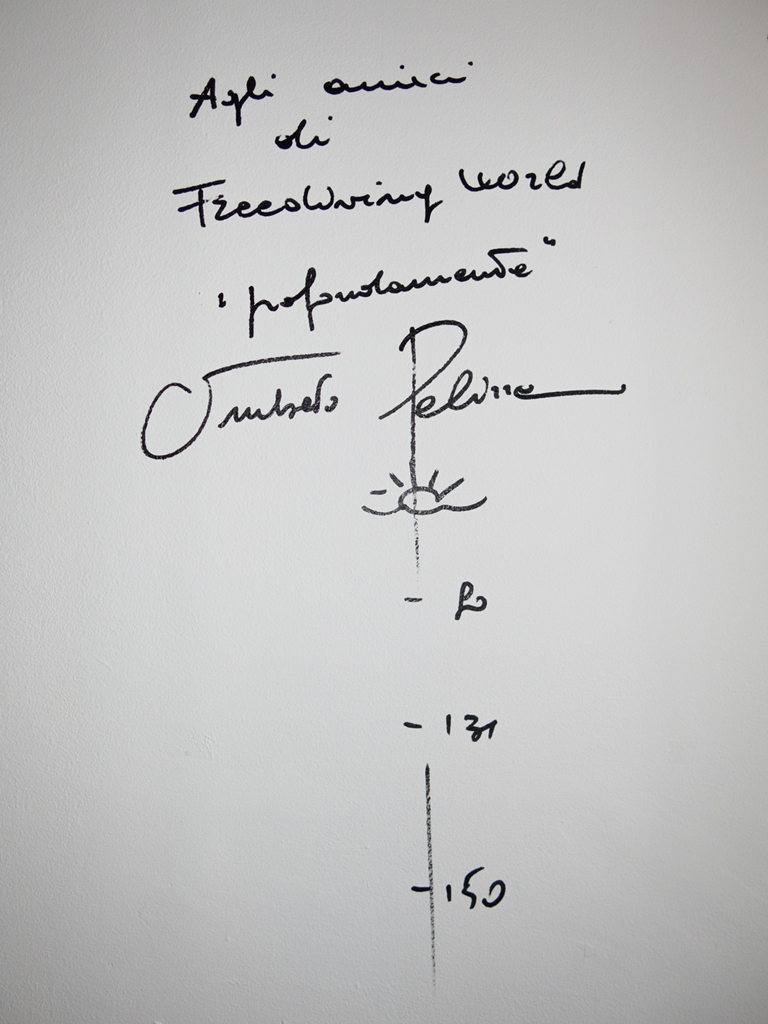 Agli amici
di
Freediving World
"profondamente"
Umberto Pelizzari
131
150